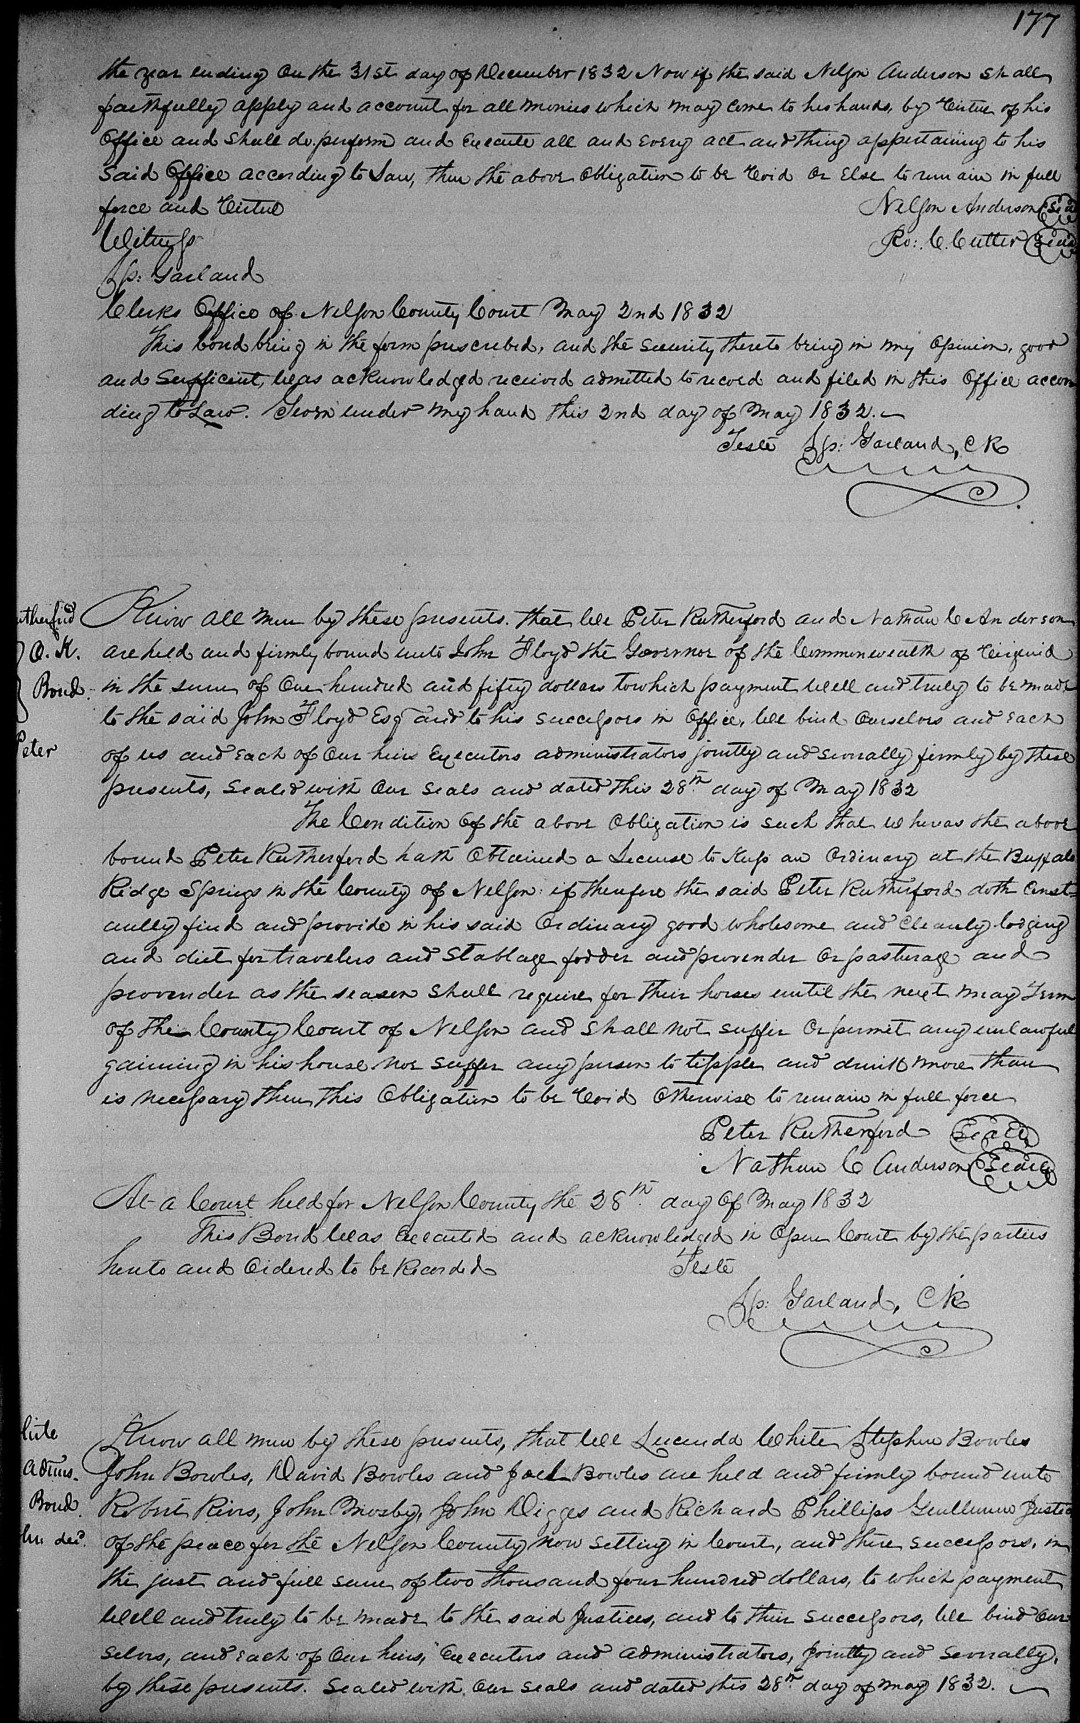 177
the year ending on the 31st day of December 1832 Now if the said Nelson Anderson shall
faithfully apply and account for all monies which may come to his hands, by Virtue of his
Office and shall do perform and Execute all and Every act and thing appertaining to his
Said Office according to Law, then the above obligation to be Void or Else to remain in full
force and Virtue
Nelson Anderson Seal
Witness
Ro: C. Cutler Seal
Sp: Garland
Clerks Office of Nelson County Court May 2nd 1832
This bond being in the form prescribed, and the Security thereto being in my Opinion, good
and Sufficient, was acknowledged received admitted to record and filed in this Office accor
ding to Law. Given under my hand this 2nd day of May 1832.
Teste Sp: Garland, CK
utherford
O. K.
Bond
Peter
Know all men by these presents. that We Peter Rutherford and Nathan C Anderson
are held and firmly bound unto John Floyd the Governor of the Commonwealth of Virginia
in the sum of One hundred and fifty dollars to which payment Well and truly to be made
to the said John Floyd Esq and to his successors in Office, We bind Ourselves and Each
of us and Each of Our heirs Executors administrators jointly and severally firmly by these
presents, Sealed with Our Seals and dated this 28th day of May 1832
The Condition of the above Obligation is such that whereas the above
bound Peter Rutherford hath Obtained a License to Keep an Ordinary at the Buffalo
Ridge Springs in the County of Nelson: if therefore the said Peter Rutherford doth Const
antly find and provide in his said Ordinary good wholesome and Cleanly lodging
and diet for travelers and Stablage fodder and provender Or pasturage and
provender as the season Shall require for their horses until the next may Term
of the County Court of Nelson and shall not suffer Or permit any unlawful
gaming in his house nor suffer any person to tipple and drink more than
is necessary then this Obligation to be Void Otherwise to remain in full force
Peter Rutherford Seal
Nathan C Anderson Seal
At a Court held for Nelson County the 28th day Of May 1832
This Bond Was Executed and acknowledged in Open Court by the parties
hereto and Ordered to be Recorded
Teste
Sp: Garland, CK
hite
Adms.
Bond.
hn decd.
Know all men by these presents, that We Lucinda White, Stephen Bowles
John Bowles, David Bowles and Joel Bowles are held and firmly bound unto
Robert Rives, John Mosby, John Digges and Richard Phillips Gentlemen Justices
of the peace for the Nelson County now setting in Court, and there successors, in
the just and full sum of two thousand four hundred dollars, to which payment
Well and truly to be made to the said Justices, and to their successors, We bind Our
selves, and Each of Our heirs, Executors and administrators, jointly and severally,
by these presents. Sealed with Our Seals and dated this 28th day of May 1832.